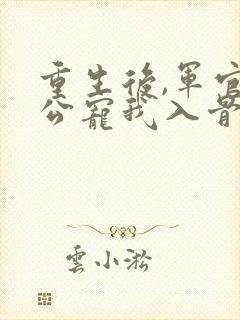 重生後,軍官
公寵我入骨
雲小淞